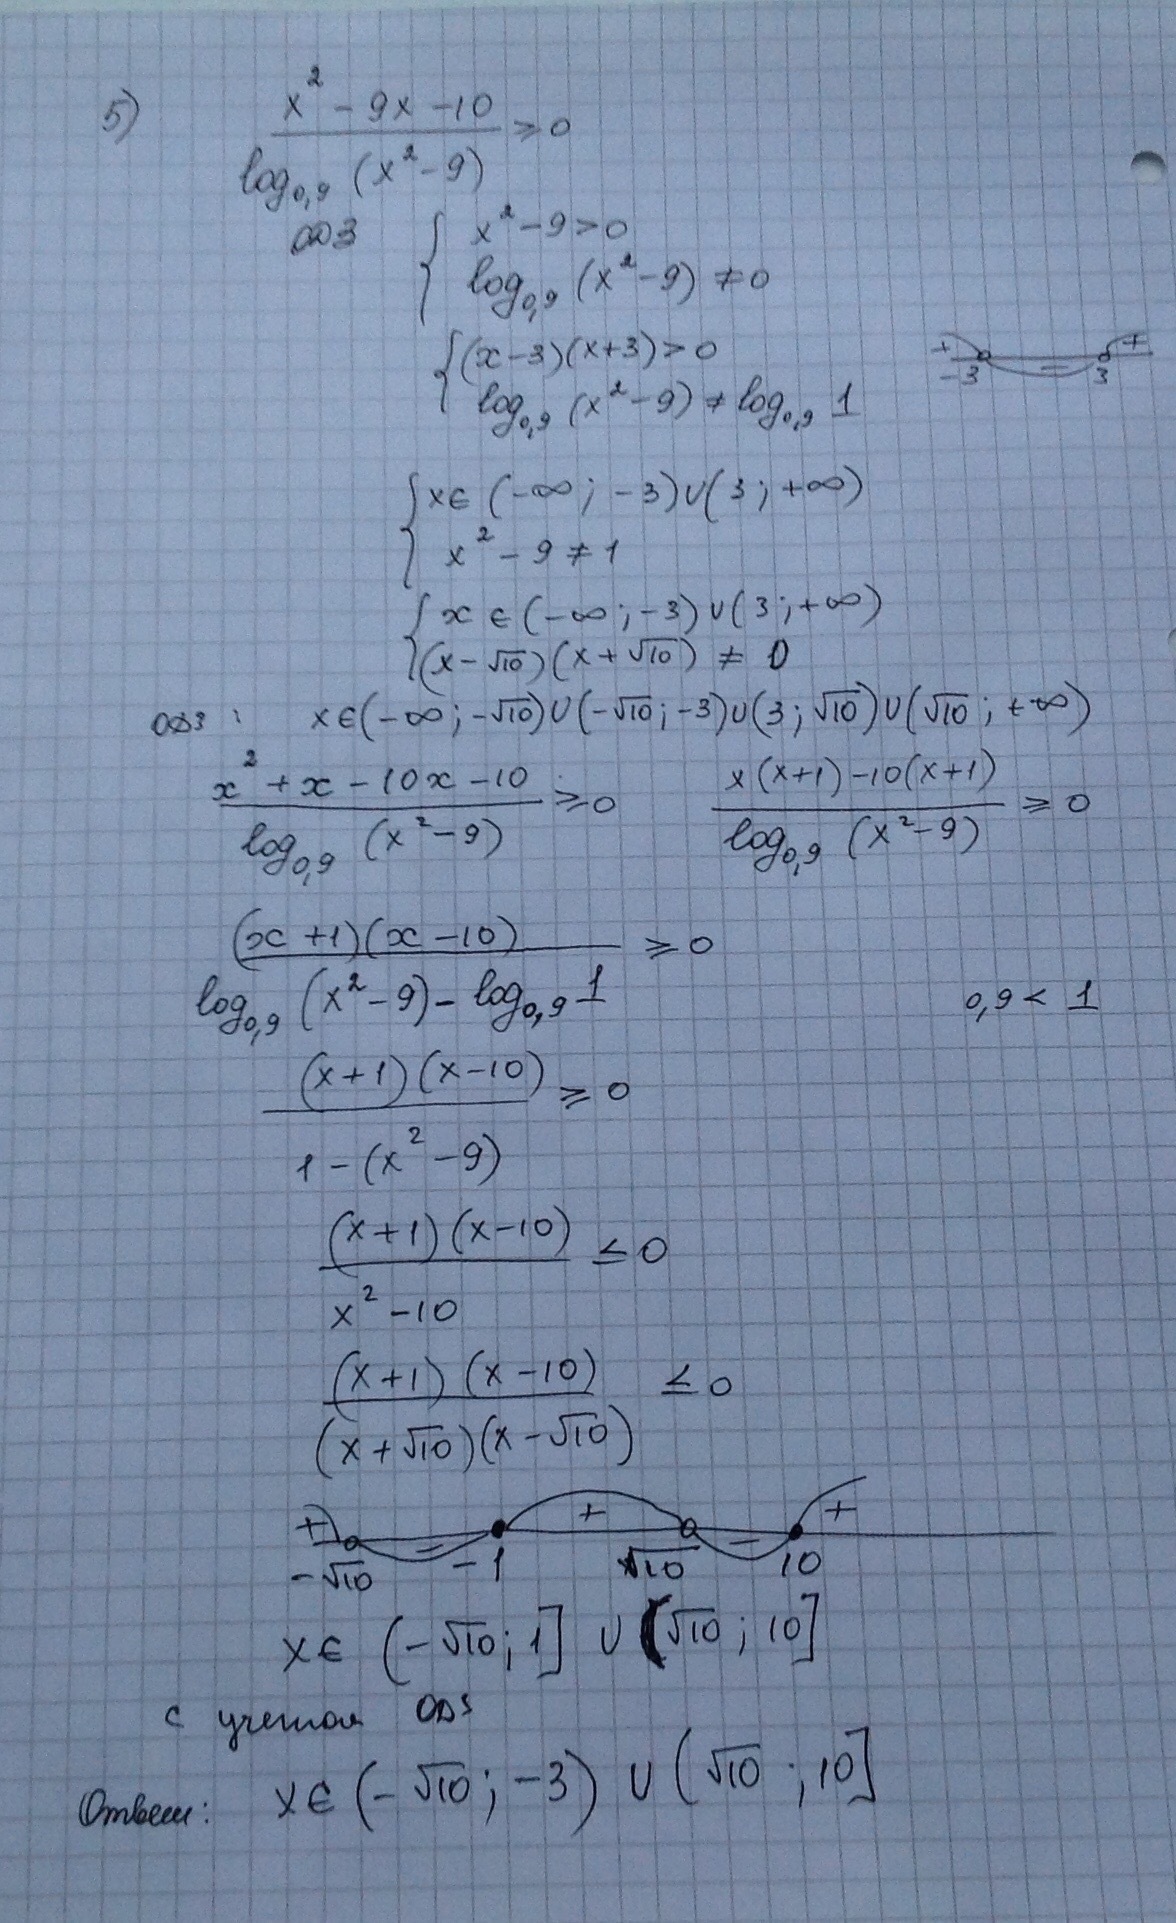 5) (x² - 9x - 10) / (log₀,₉ (x² - 9)) ≥ 0
ОДЗ { x² - 9 > 0
log₀,₉ (x² - 9) ≠ 0
{ (x - 3)(x + 3) > 0
log₀,₉ (x² - 9) ≠ log₀,₉ 1
+ -3 - 3 +
{ x ∈ (-∞; -3) ∪ (3; +∞)
x² - 9 ≠ 1
{ x ∈ (-∞; -3) ∪ (3; +∞)
(x - √10)(x + √10) ≠ 0
ОДЗ: x ∈ (-∞; -√10) ∪ (-√10; -3) ∪ (3; √10) ∪ (√10; +∞)
(x² + x - 10x - 10) / (log₀,₉ (x² - 9)) ≥ 0 (x(x+1) - 10(x+1)) / (log₀,₉ (x² - 9)) ≥ 0
((x + 1)(x - 10)) / (log₀,₉ (x² - 9) - log₀,₉ 1) ≥ 0 0,9 < 1
((x+1)(x-10)) / (1 - (x² - 9)) ≥ 0
((x+1)(x-10)) / (x² - 10) ≤ 0
((x+1)(x-10)) / ((x + √10)(x - √10)) ≤ 0
+ - + - +
-√10 -1 √10 10
x ∈ (-√10; 1] ∪ (√10; 10]
с учетом ОДЗ
Ответ: x ∈ (-√10; -3) ∪ (√10; 10]